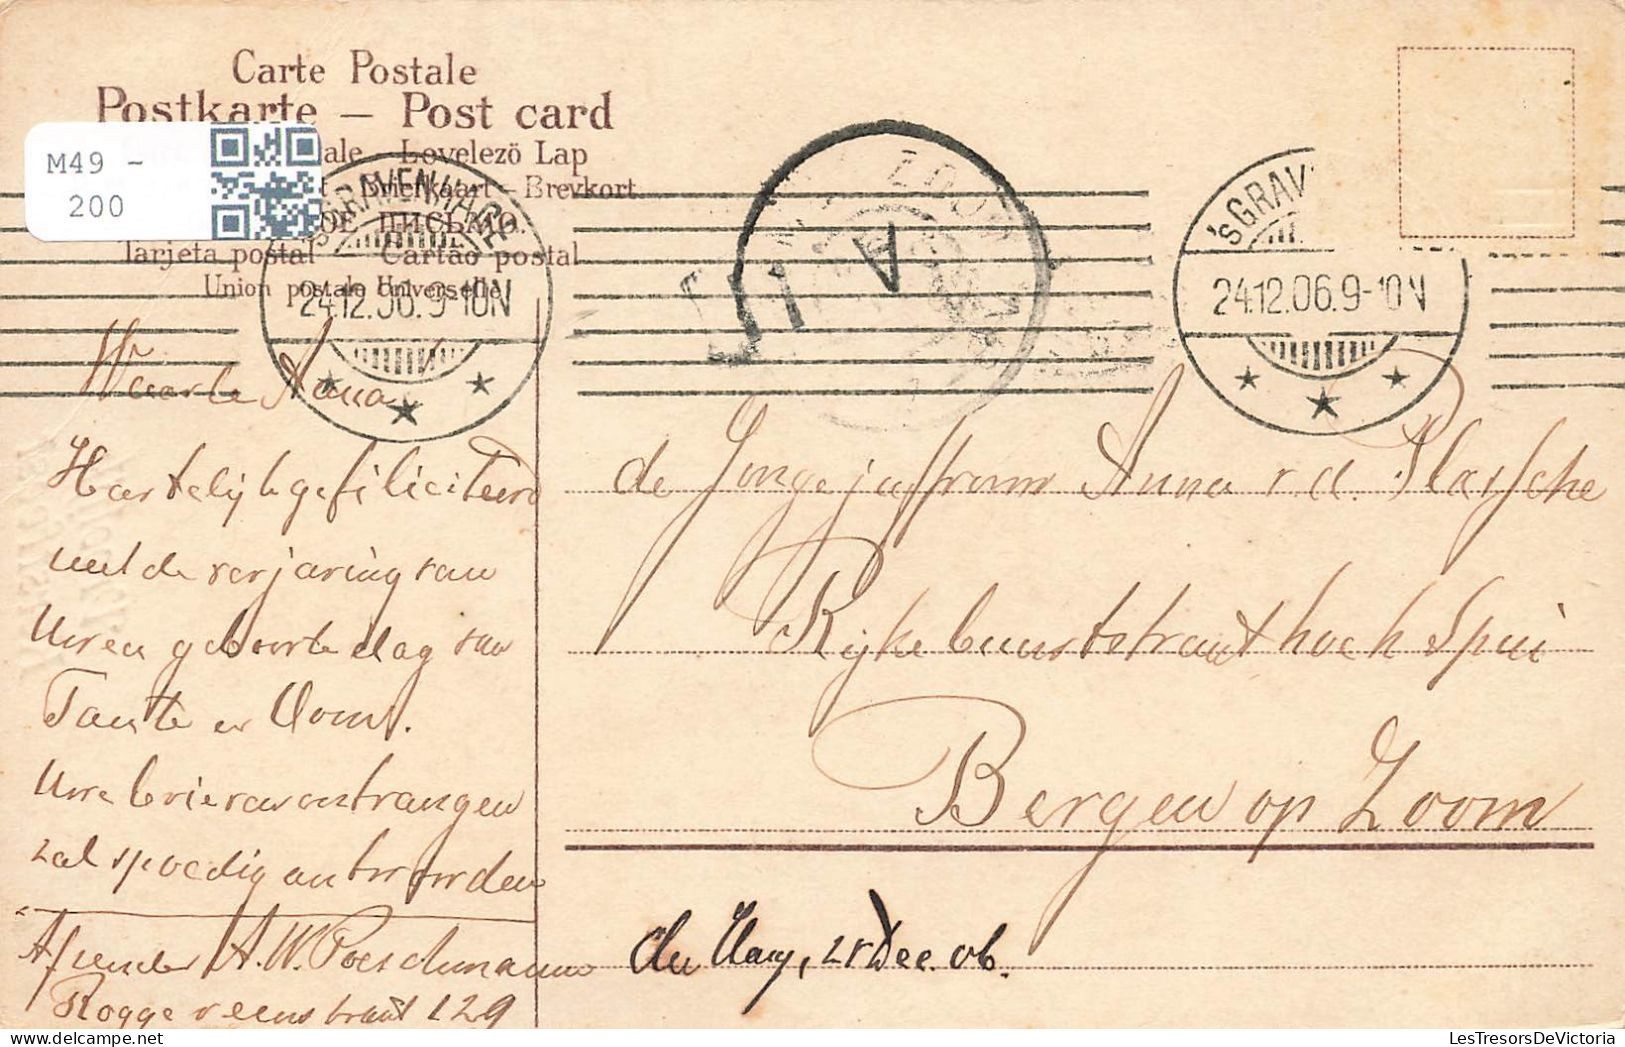 Carte Postale
Postkarte — Post card
ale - Levelezö Lap
Briefkaart - Brevkort
ОЕ ПИСЬМО.
Tarjeta postal Cartão postal
Union postale Universelle
M49 -
200
'sGRAVENHAGE
24.12.06.9-10N
ZOOM
A
'sGRAV
24.12.06.9-10N
Waarde Anna
Hartelijk gefiliciteerd
met de verjaring van
Uwen geboortedag van
Tante en Oom.
Uwe brief ontvangen
zal spoedig antwoorden
Afzender A. W. Poeschmann
Roggeveenstraat 129
de Jongejuffrouw Anna v. d. Plassche
Rijkebuurtstraat hoek Spui
Bergen op Zoom
den Haag, 25 Dec. 06.
LesTresorsDeVictoria